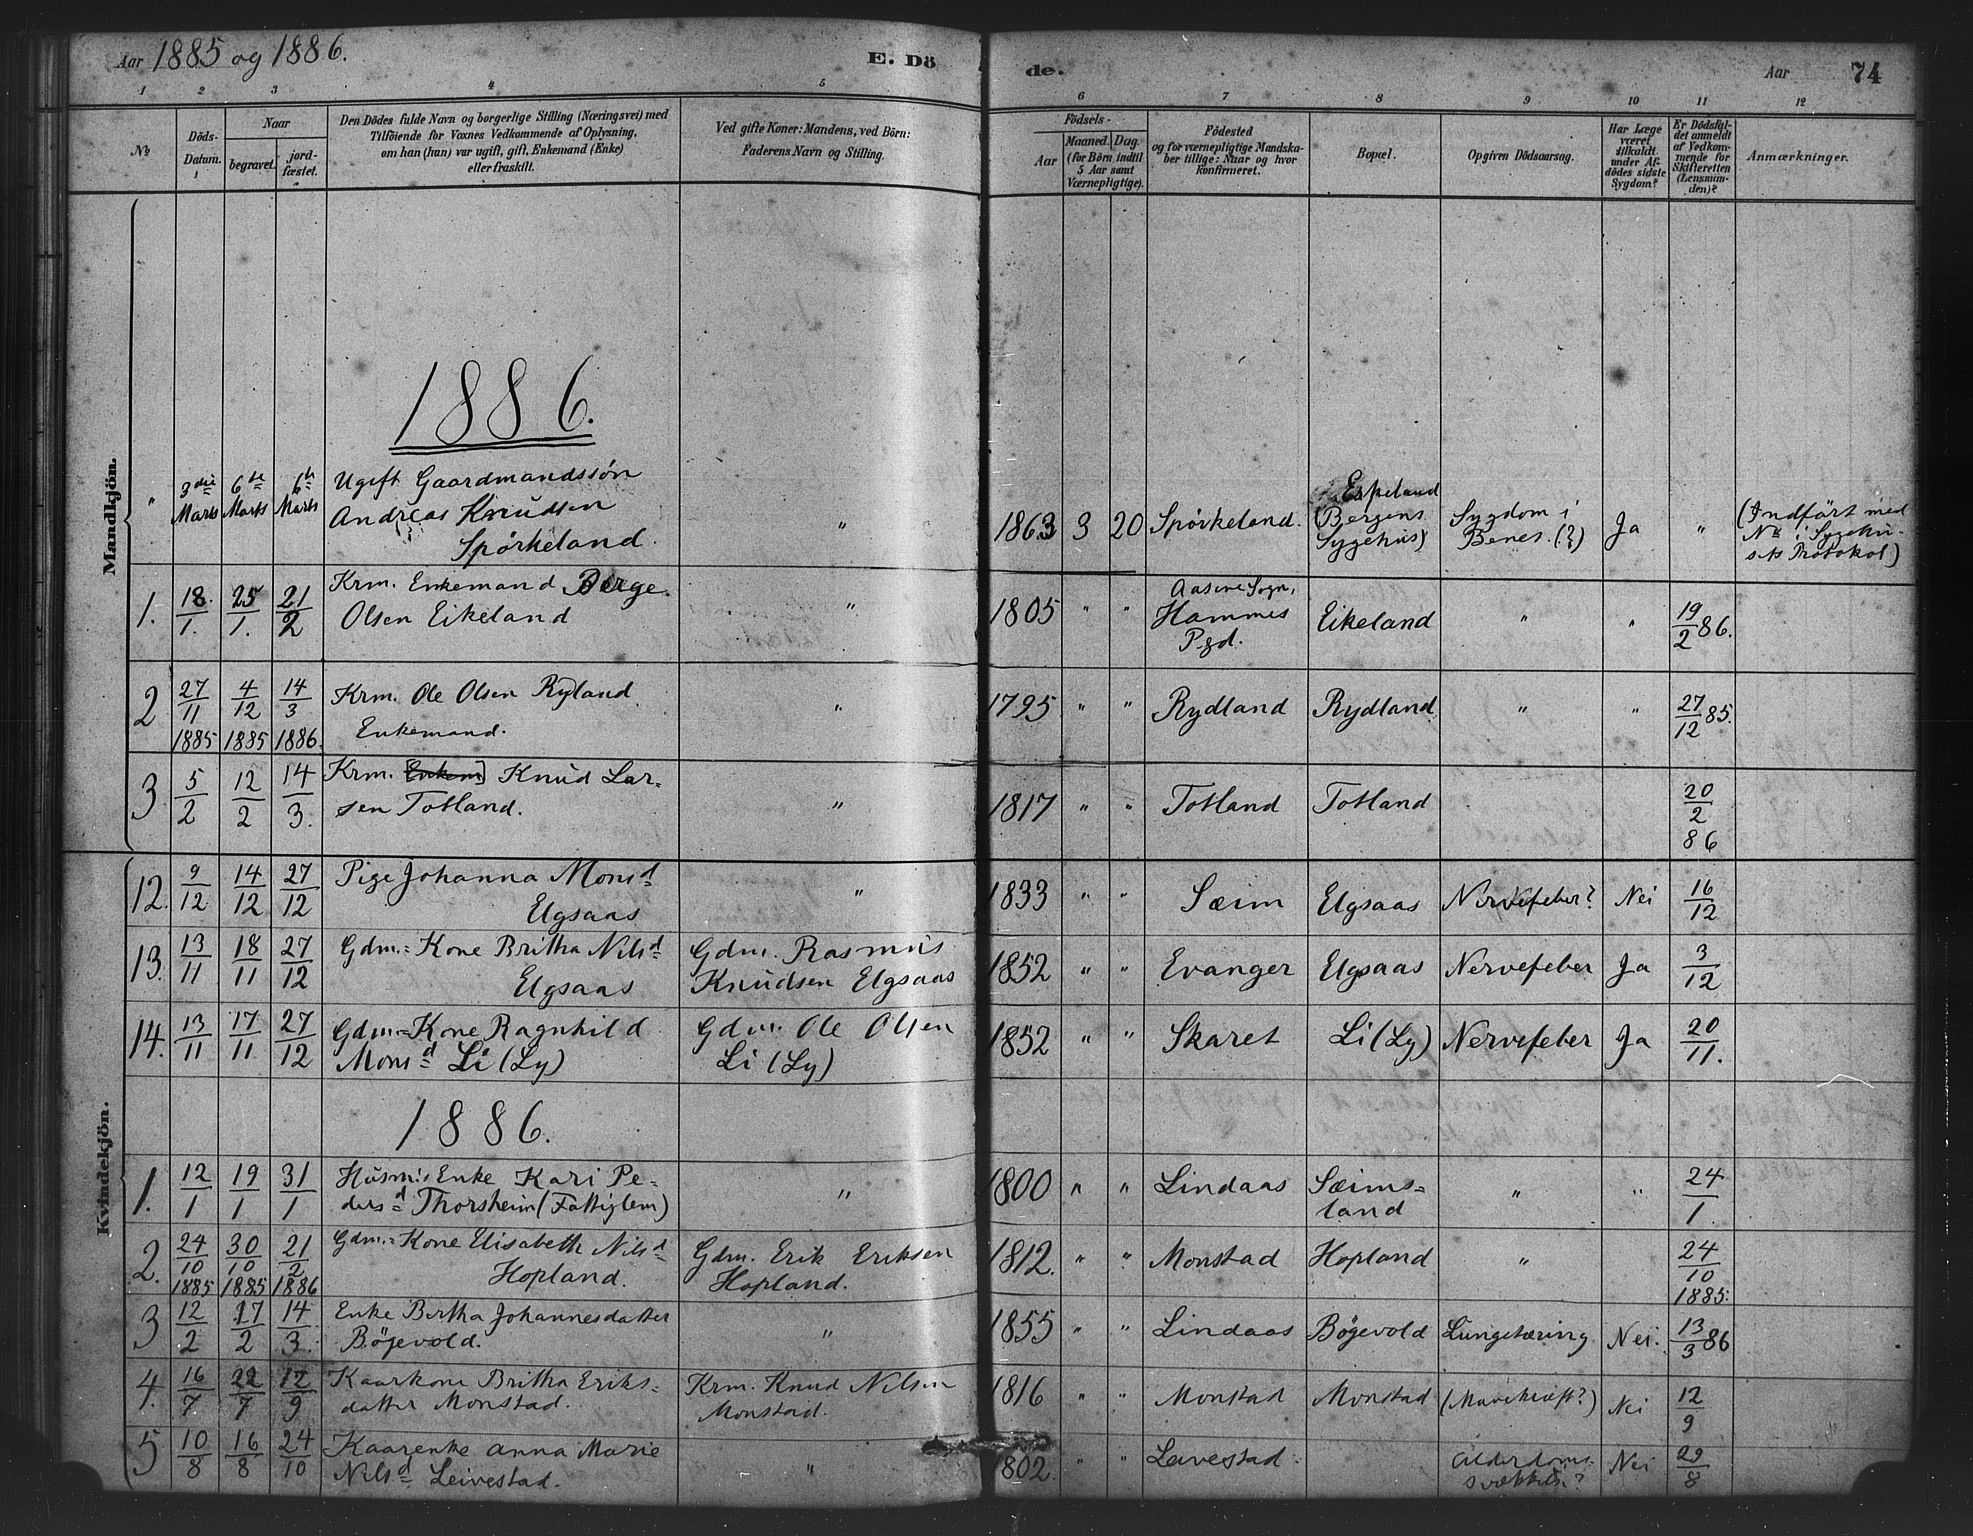 Aar 1885 og 1886.
E. Dö
de.
Aar
74
1 2 3 4 5 6 7 8 9 10 11 12
No
Döds-
Datum.
Naar
begravet.
jord-
fæstet.
Den Dödes fulde Navn og borgerlige Stilling (Næringsvei) med
Tilföiende for Voxnes Vedkommende af Oplysning,
om han (hun) var ugift, gift, Enkemand (Enke)
eller fraskilt.
Ved gifte Koner: Mandens, ved Börn:
Faderens Navn og Stilling.
Födsels-
Aar
Maaned.
Dag.
(for Börn indtil
5 Aar samt
Værnepligtige).
Födested
og for værnepligtige Mandska-
ber tillige: Naar og hvor
konfirmeret.
Bopæl.
Opgiven Dödsaarsag.
Har Læge
været
tilkaldt
under Af-
dödes sidste
Sygdom?
Er Dödsfal-
det anmeldt
af Vedkom-
mende for
Skifteretten
(Lensman-
den)?
Anmærkninger.
Mandkjön.
1886.
" 3die Marts 6te Marts 6te Marts Ugift Gaardmandssön
Andreas Knudsen
Spörkeland. " 1863 3 20 Spörkeland. Eskeland
(Bergens
Sygehus) Sygdom i
Benet. (?) Ja " (Indfört med
No i Sygehu-
sets Protokol)
1. 18/1. 25/1. 21/2 Krm. Enkemand Børge
Olsen Eikeland " 1805 " " Aasene Sogn,
Hammes
Pgd. Eikeland " " 19/2 86.
2 27/11 1885 4/12 1885 14/3 1886. Krm. Ole Olsen Rydland
Enkemand. " 1795 " " Rydland Rydland " " 27/12 85.
3 5/2 12/2 14/3. Krm. [Enkem] Knud Lar-
sen Totland. " 1817 " " Totland Totland 20/2 86
Kvindekjön.
12. 9/12 14/12 27/12 Pige Johanna Monsd
Elgsaas " 1833 " " Sæim Elgsaas Nervefeber? Nei 16/12
13. 13/11 18/11 27/12 Gdm.= Kone Britha Nilsd
Elgsaas Gdm. Rasmus
Knudsen Elgsaas 1852 " " Evanger Elgsaas Nervefeber Ja 3/12
14. 13/11 17/11 27/12 Gdm=Kone Ragnhild
Monsd Li (Ly) Gdm. Ole Olsen
Li (Ly) 1852 " " Skaret Li (Ly) Nervefeber Ja 20/11.
1886.
1. 12/1 19/1 31/1 Husm's Enke Kari Pe-
dersd Thorsheim (Fattiglem) " 1800 " " Lindaas Sæims=
land " " 24/1.
2. 24/10 1885 30/10 1885 21/2 1886 Gdm.= Kone Elisabeth Nilsd
Hopland. Gdm. Erik Eriksen
Hopland. 1812. " " Monstad Hopland " 24/10 1885.
3 12/2 17/2 14/3. Enke Bertha Johannesdatter
Bögevold. " 1855 " " Lindaas Bögevold Lungetæring Nei. 13/3 86
4. 16/7 22/7 12/9 Kaarkone Britha Eriks=
datter Monstad. Krm. Knud Nilsen
Monstad. 1816 " " Monstad Monstad (Mavekræft?) Nei 12/9
5 10/8 16/8 24/10 Kaarenke Anna Marie
Nilsd Leivestad. " 1802. " " Leivestad. Alderdoms-
svækkelse? Nei 29/8